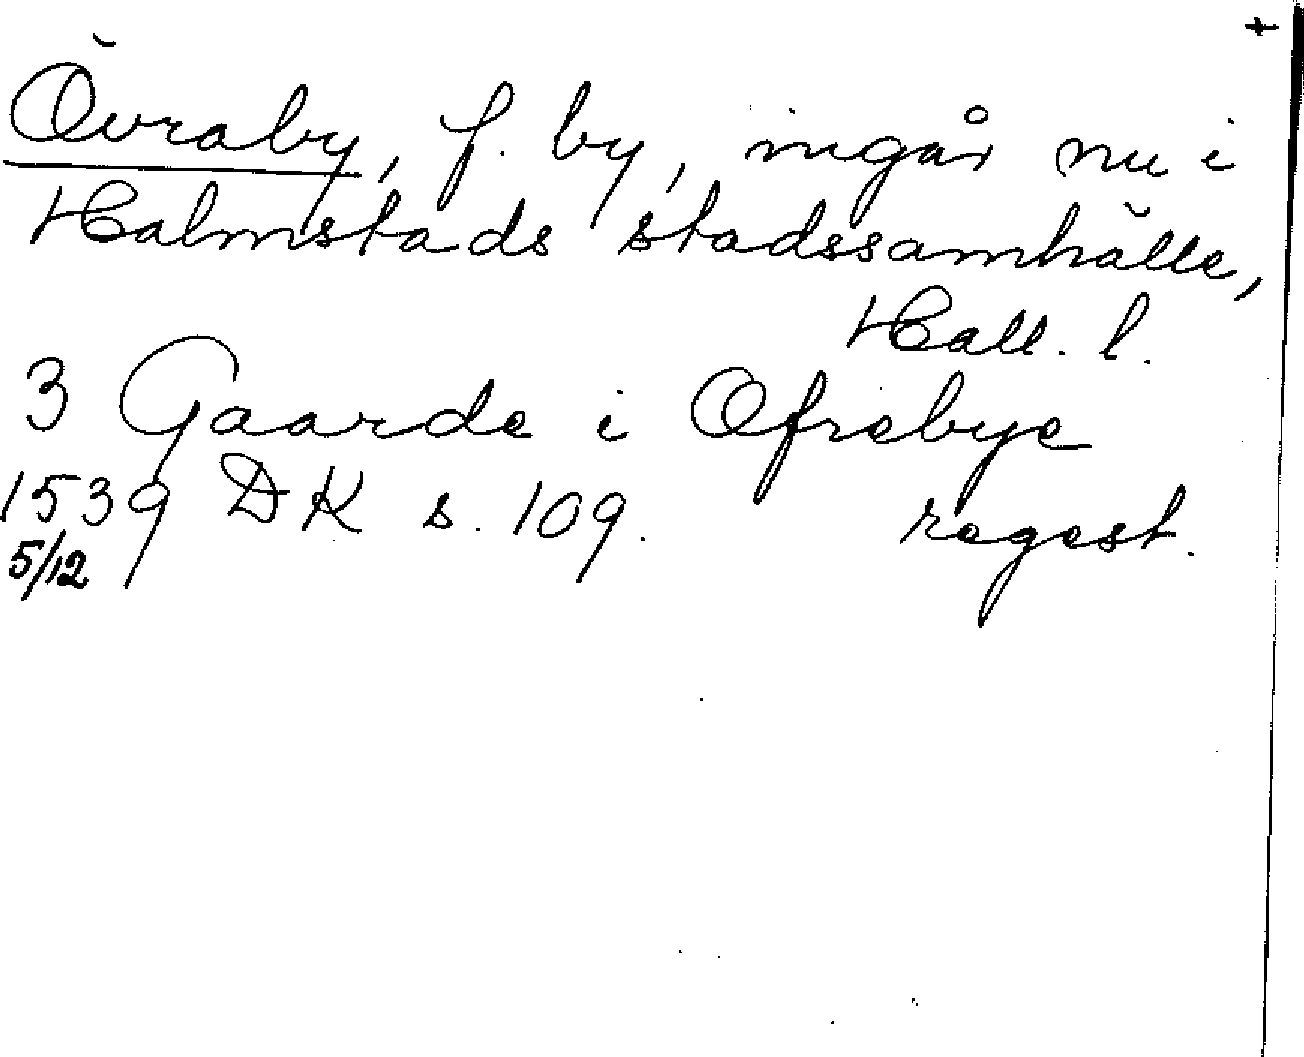 +
Övraby, f. by, ingår nu i
Halmstads stadssamhälle,
Hall. l.
3 Gaarde i Ofrebye
1539 DK s. 109. regest.
5/12